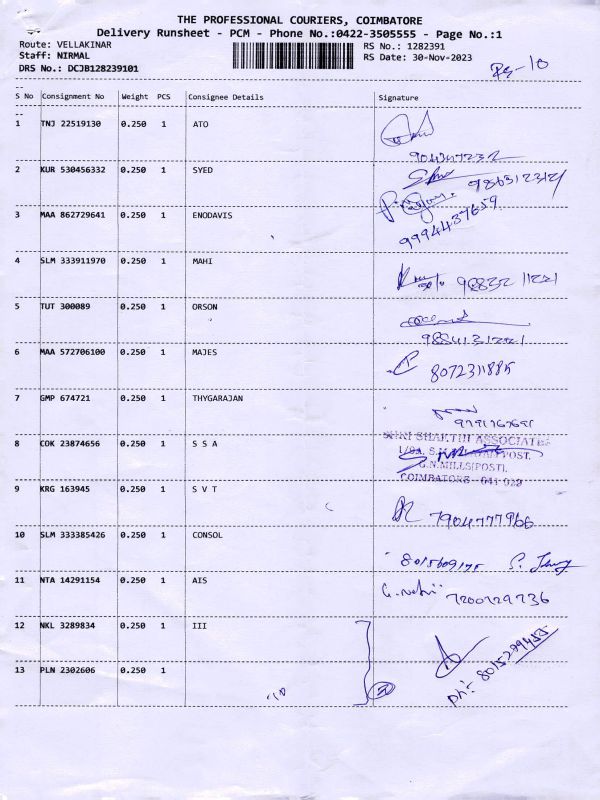 THE PROFESSIONAL COURIERS, COIMBATORE
Delivery Runsheet - PCM - Phone No.:0422-3505555 - Page No.:1
Route: VELLAKINAR RS No.: 1282391
Staff: NIRMAL RS Date: 30-Nov-2023
DRS No.: DCJB128239101
S No Consignment No Weight PCS Consignee Details Signature
1 TNJ 22519130 0.250 1 ATO
2 KUR 530456332 0.250 1 SYED
3 MAA 862729641 0.250 1 ENODAVIS
9994437659
4 SLM 333911970 0.250 1 MAHI
5 TUT 300089 0.250 1 ORSON
6 MAA 572706100 0.250 1 MAJES
8072311885
7 GMP 674721 0.250 1 THYGARAJAN
8 COK 23874656 0.250 1 S S A
SHRI SHAKTHI ASSOCIATES
POST,
G.N.MILLS(POST),
COIMBATORE - 641 029
9 KRG 163945 0.250 1 S V T
7904777966
10 SLM 333385426 0.250 1 CONSOL
11 NTA 14291154 0.250 1 AIS
12 NKL 3289834 0.250 1 III
13 PLN 2302606 0.250 1